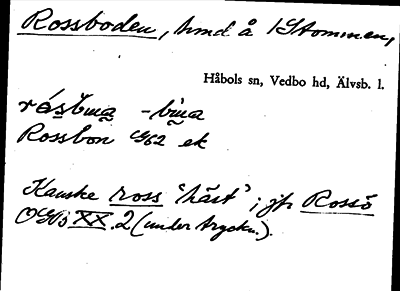 Rossboden, hmd å Stommen,
Håbols sn, Vedbo hd, Älvsb. l.
råsbuna -bina
Rossbon 1762 ek
Kanske ross 'häst'; jfr Rossö
OGB XX.2 (under tryckn.).